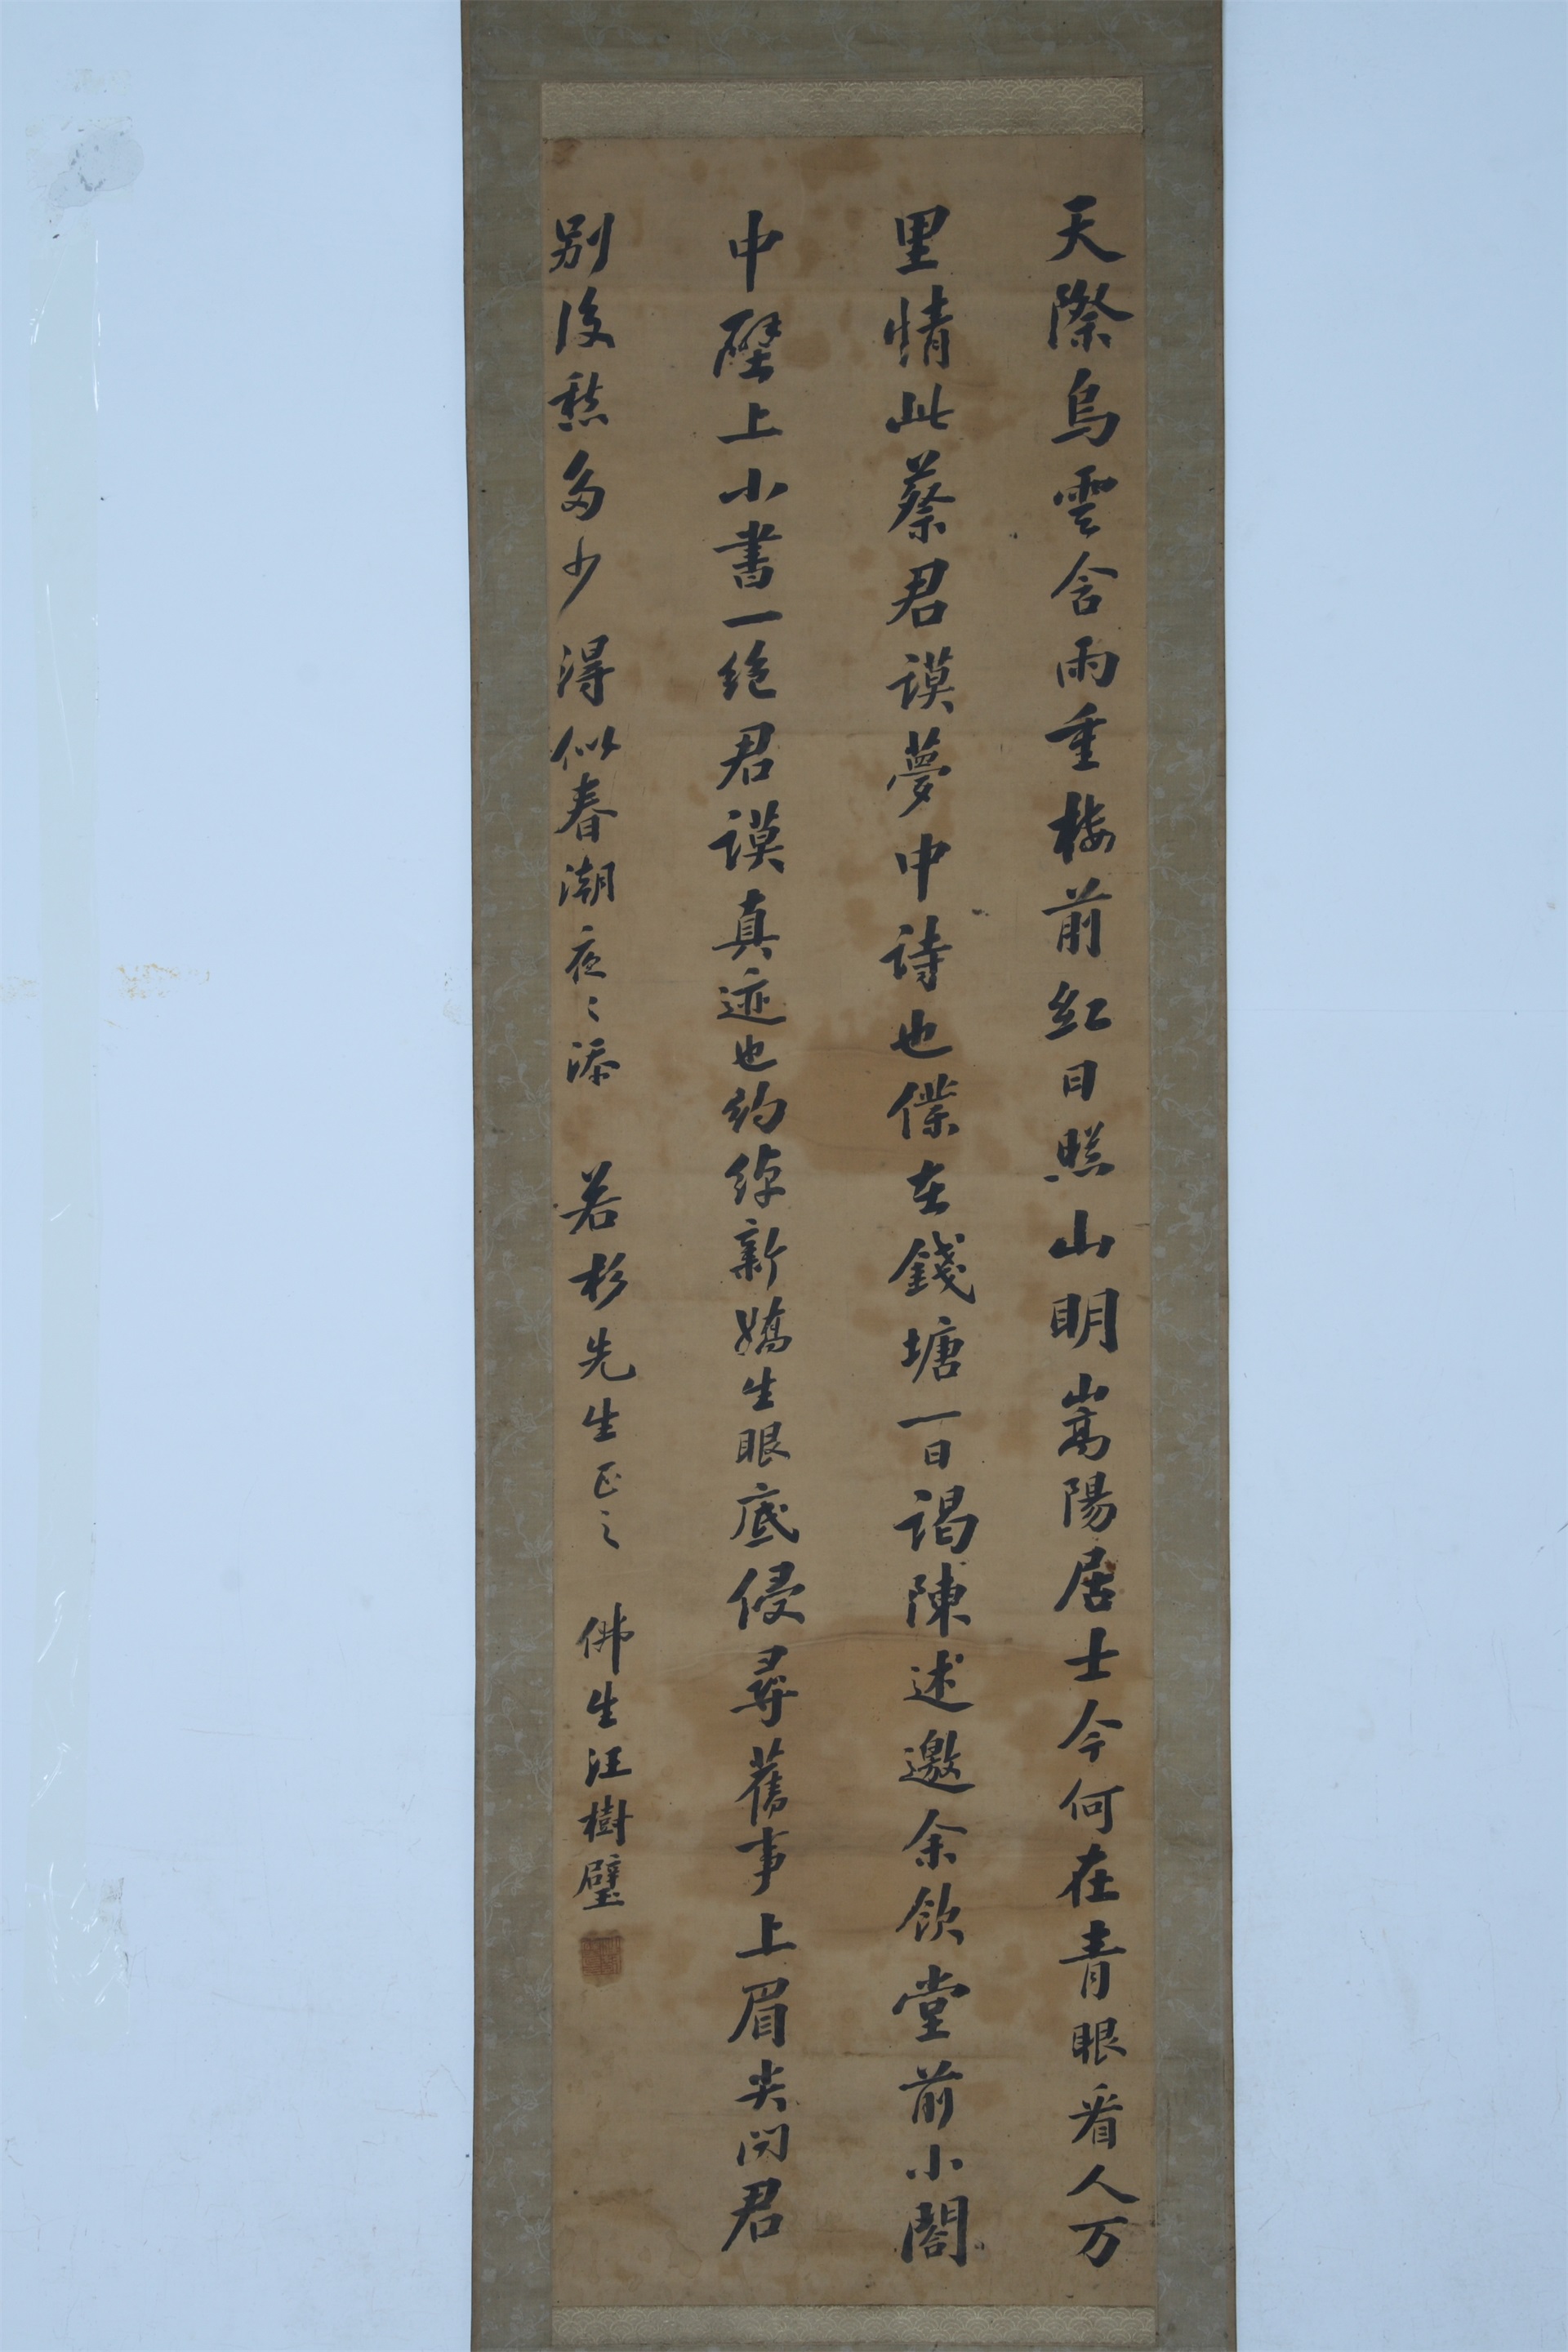 天際烏雲含雨重樓前紅日照山明嵩陽居士今何在青眼看人万
里情此蔡君謨夢中詩也僕在錢塘一日謁陳述邀余飲堂前小閣
中壁上小書一绝君謨真迹也約綽新嬌生眼底侵尋舊事上眉尖问君
别後愁多少得似春潮夜〻添 若杉先生正之 佛生汪樹璧